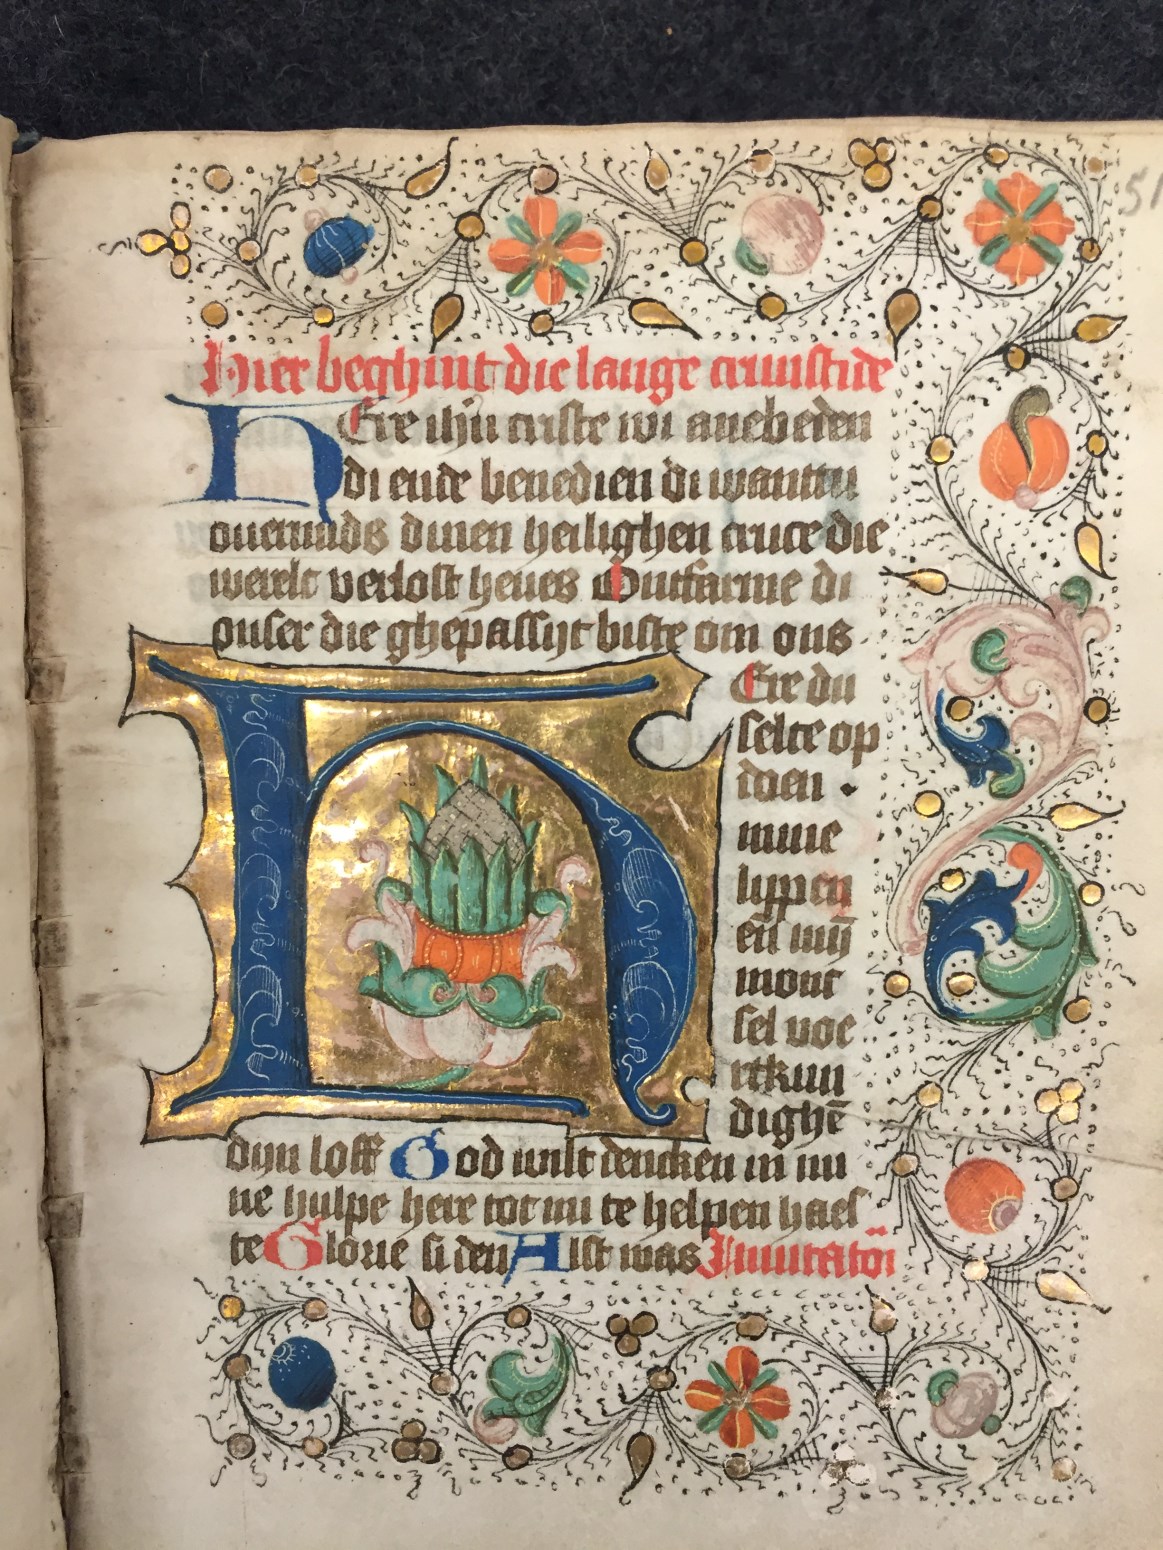 51
Hier beghint die lange cruustide
HEre ihū criste wi anebeden
di ende benedien di wanttu
ouermids dinen heilighen cruce die
werelt verlost heues Ontfarme di
onser die ghepassijt biste om ons
HEre du
selte op
doen ·
mine
lippen
eñ mij
mont
sel voe
rtkun
dighē
dijn loff God wilt dencken in mi
ne hulpe here tot mi te helpen haes
te Glorie si den Alst was Inuitatoī